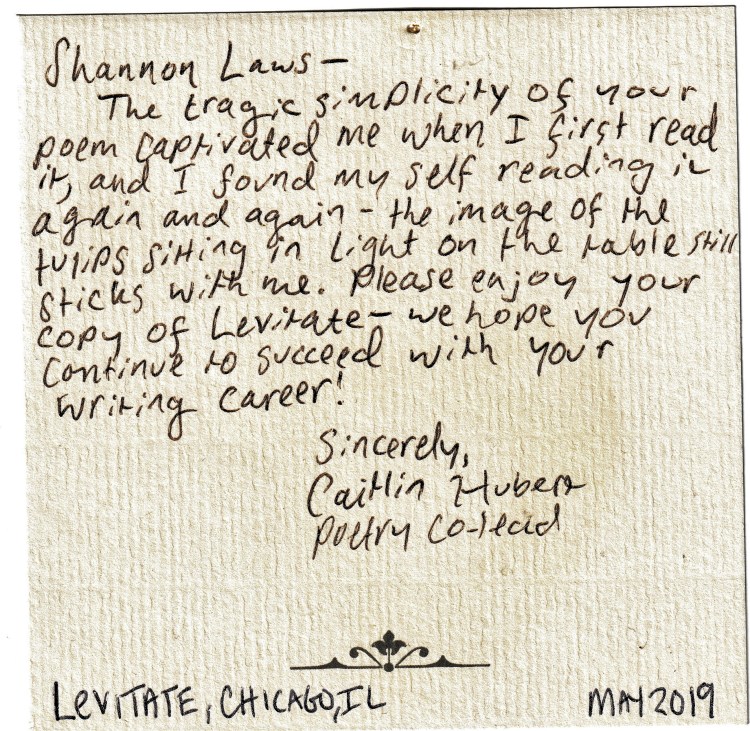 Shannon Laws—
The tragic simplicity of your
poem captivated me when I first read
it, and I found my self reading it
again and again - the image of the
tulips sitting in light on the table still
sticks with me. Please enjoy your
copy of Levitate— we hope you
continue to succeed with your
writing career!
Sincerely,
Caitlin Hubert
Poetry Co-lead
LEVITATE, CHICAGO, IL
MAY 2019